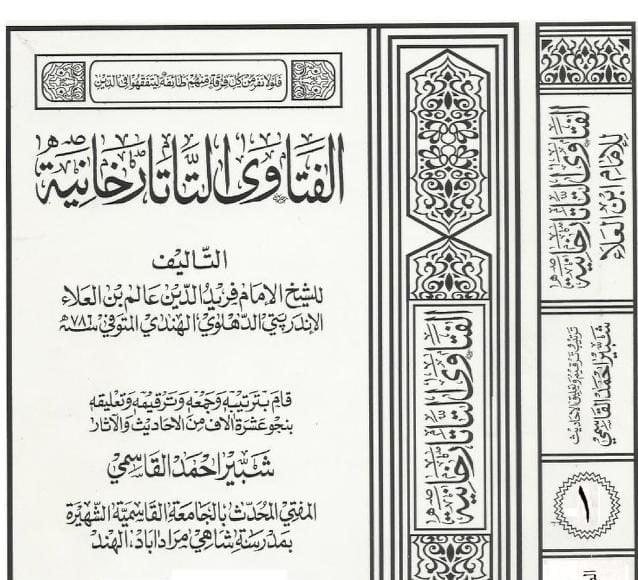 فلولا نفر من كل فرقة منهم طائفة ليتفقهوا في الدين
الفتاوى التاتارخانية
التأليف
للشيخ الإمام فريد الدين عالم بن العلاء
الإندربتي الدهلوي الهندي المتوفى سنة ٧٨٦ھ
قام بترتيبه وجمعه وترقيمه وتعليقه
بنحو عشرة آلاف من الأحاديث والآثار
شبير أحمد القاسمي
المفتي المحدث بالجامعة القاسمية الشهيرة
بمدرسة شاهي مراداباد، الهند
الفتاوى التاتارخانية
الفتاوى التاتارخانية
للإمام ابن العلاء
ترتيب ترقيم وتعليق الأحاديث
شبير أحمد القاسمي
١